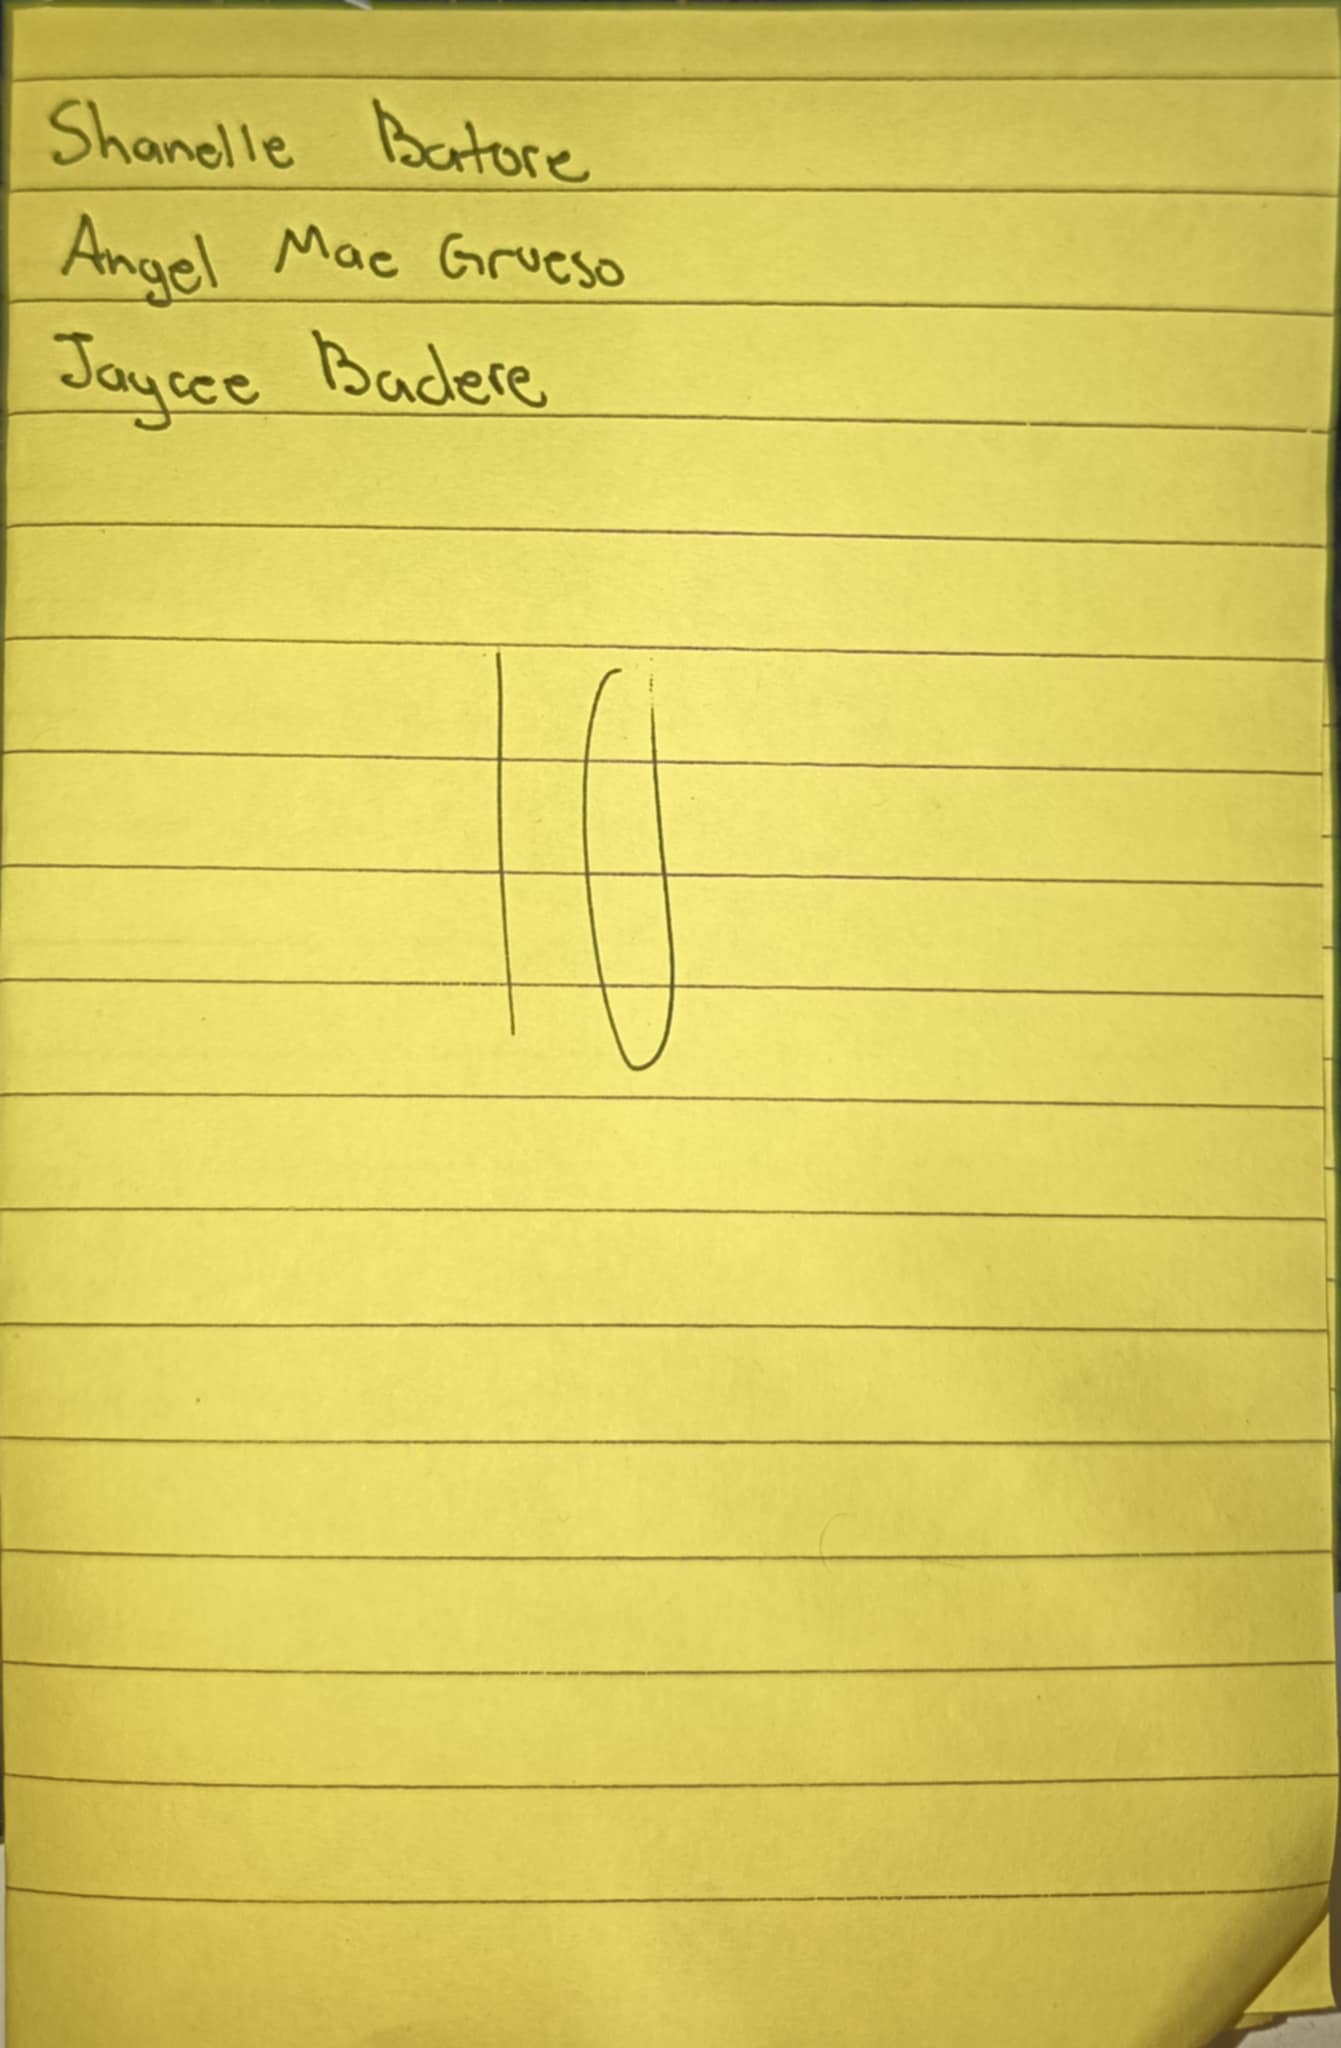 Shanelle Batore
Angel Mae Grueso
Jaycee Badere
10